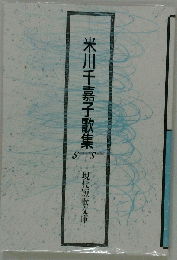 米川千嘉子歌集
現代短歌文庫